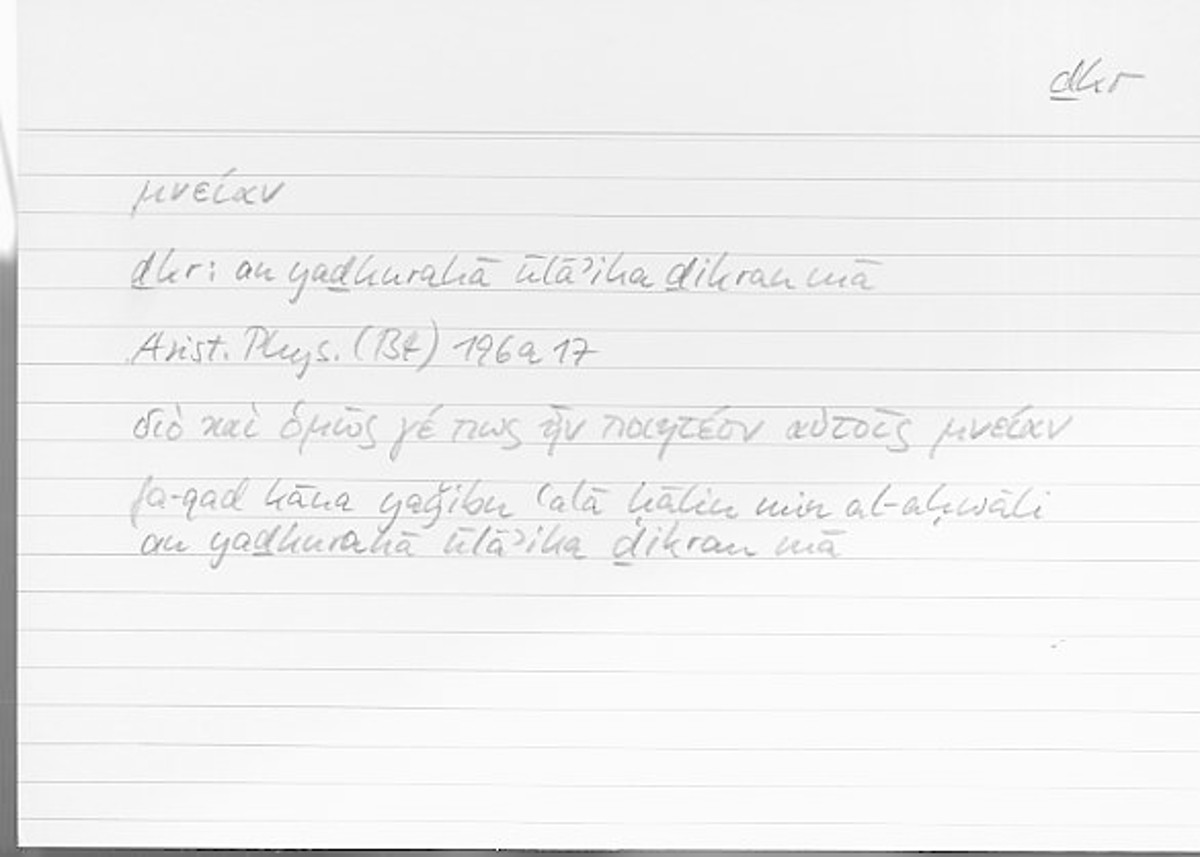 ḏkr
μνείαν
ḏkr: an yaḏkurahā ūlāʾika ḏikran mā
Arist. Phys. (Bd) 196a17
διὸ καὶ ὁμῶς γέ πως ἦν ποιητέον αὐτοῖς μνείαν
fa-qad kāna yaǧibu ʿalā ḥālin min al-aḥwāli
an yaḏkurahā ūlāʾika ḏikran mā